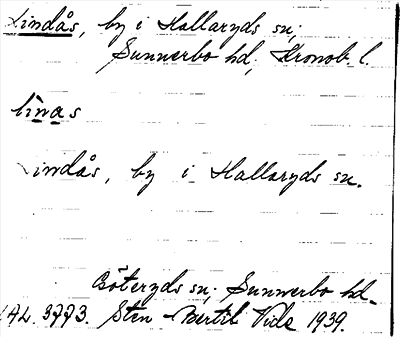 Lindås, by i Hallaryds sn;
Sunnerbo hd; Kronob. l.
linas
Lindås, by i Hallaryds sn.
Göteryds sn; Sunnerbo hd.
ÍAL. 3773. Sten-Bertil Vide 1939.